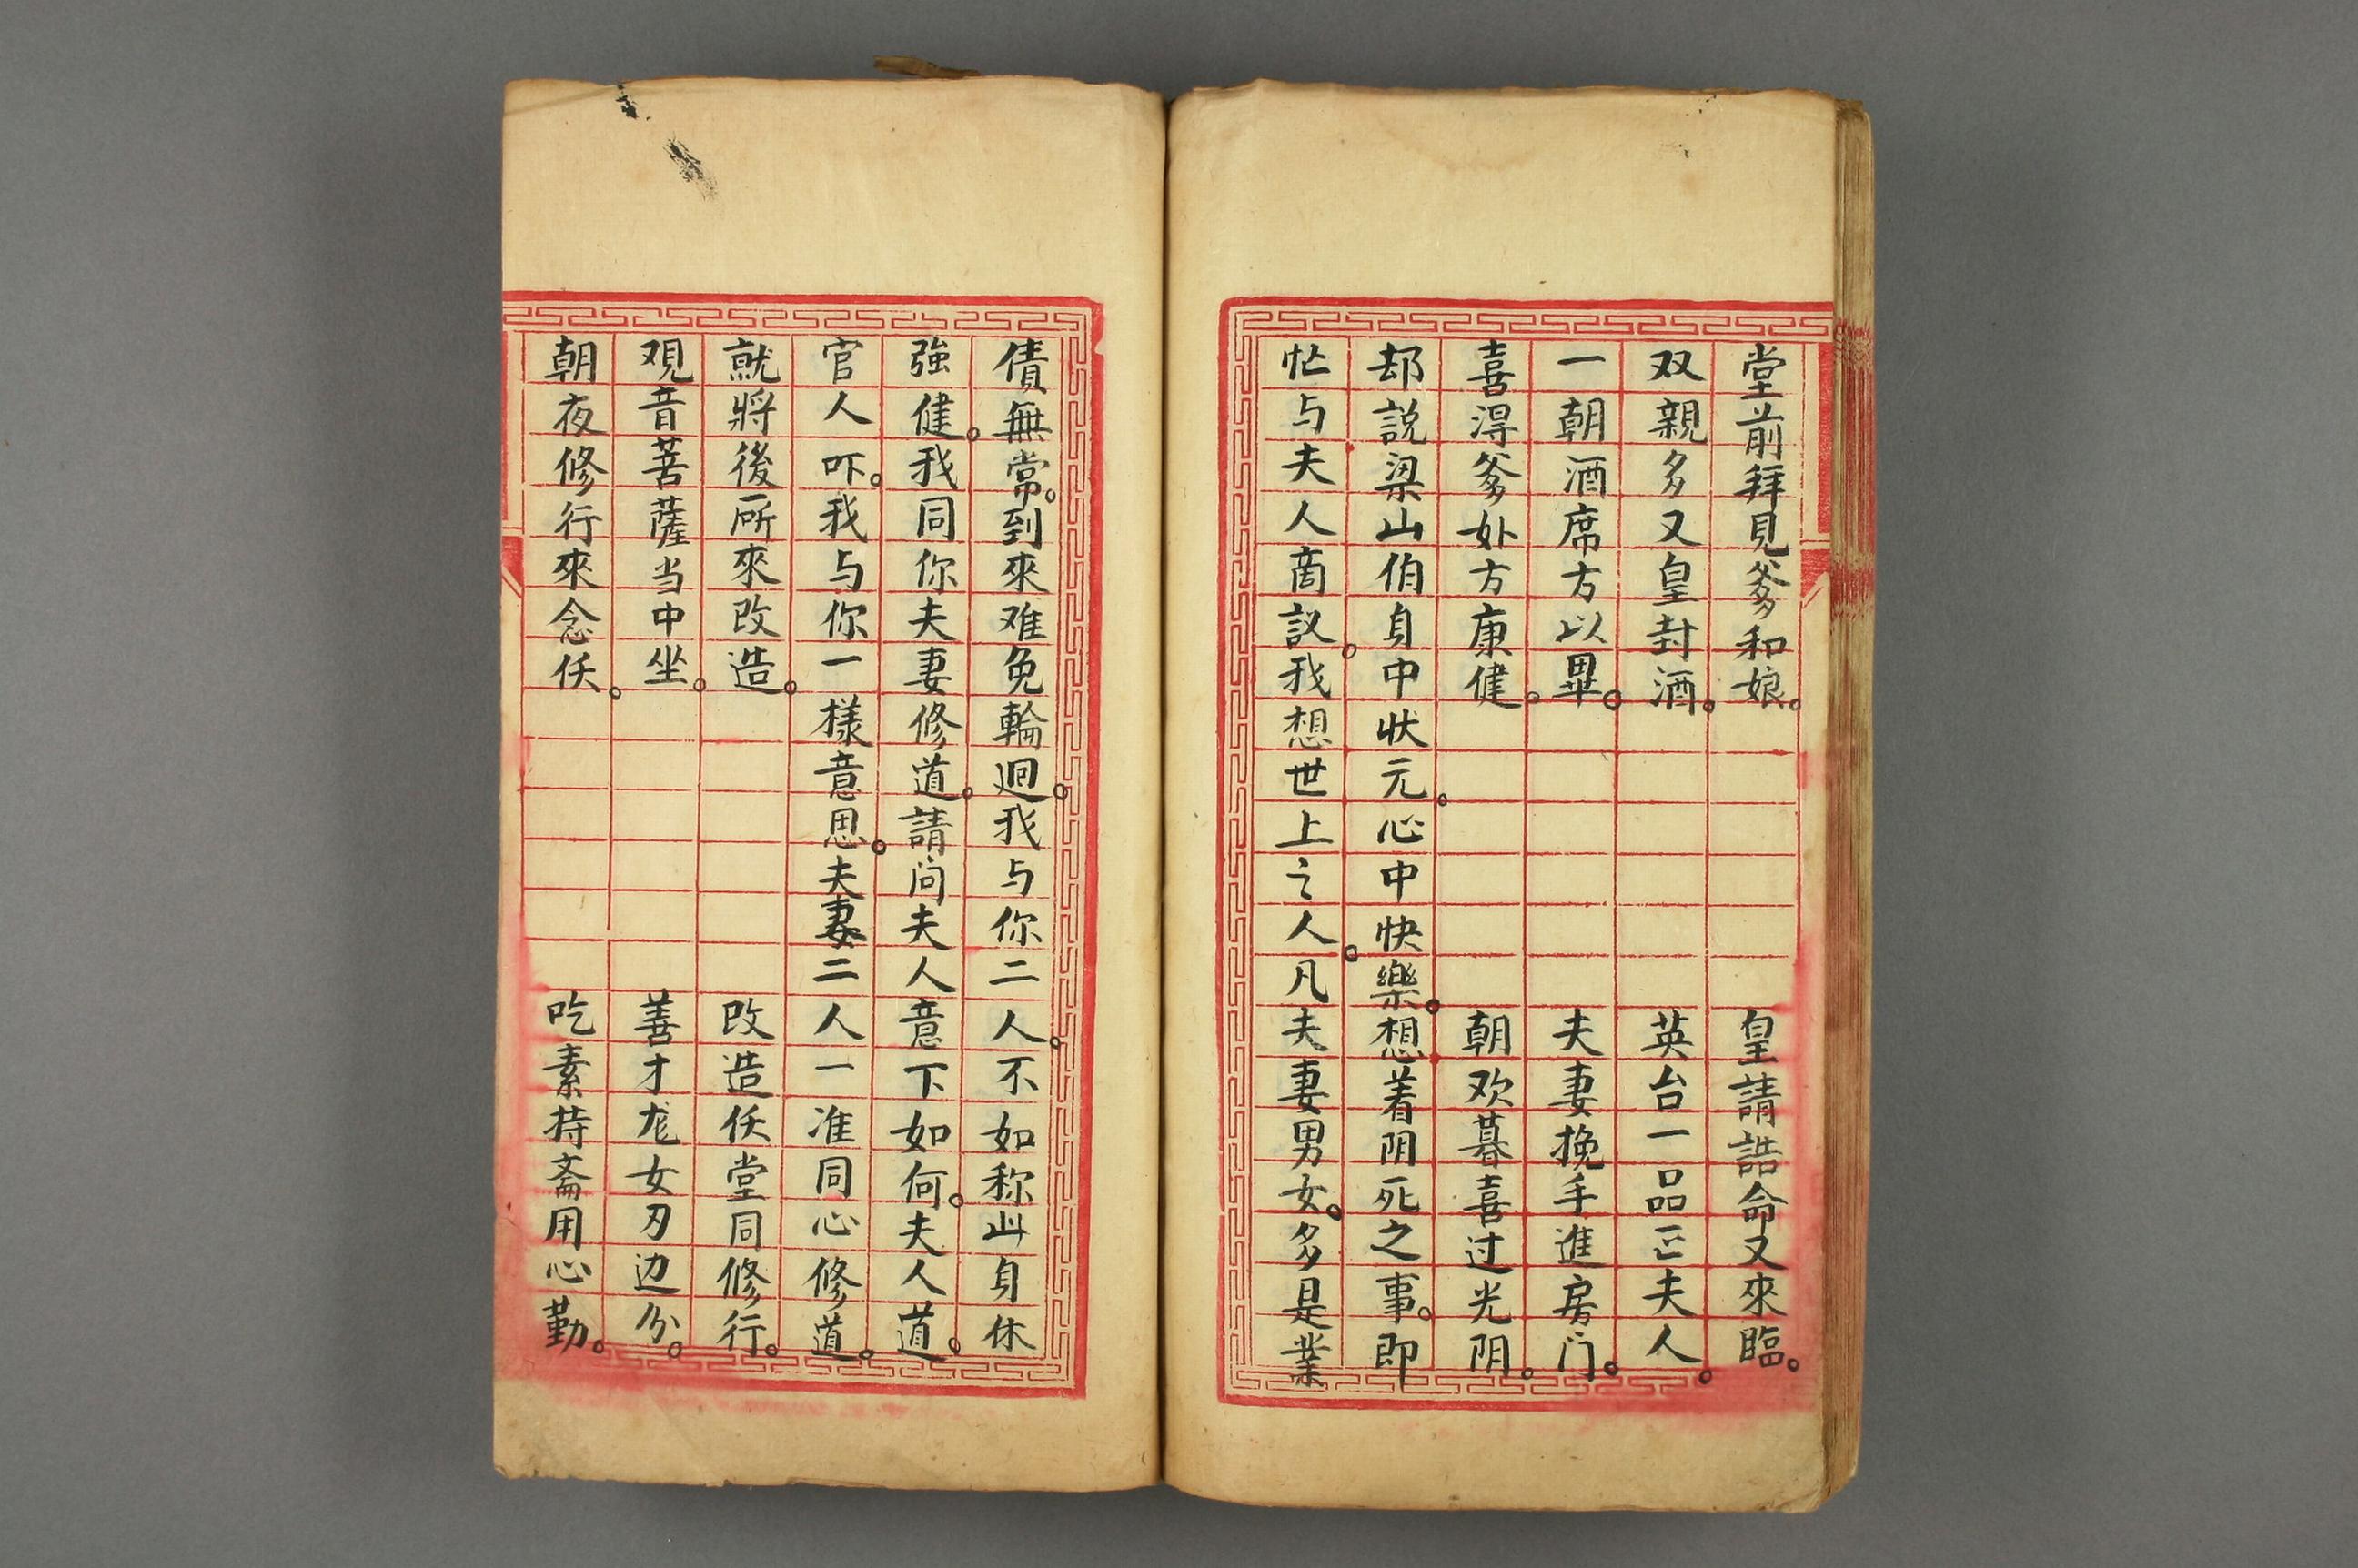 堂前拜見爹和娘。皇請誥命又來臨。
双親多又皇封酒。英台一品正夫人。
一朝酒席方以畢。夫妻挽手進房门。
喜得爹处方康健。朝欢暮喜过光阴。
却説梁山伯身中状元。心中快樂。想着阴死之事。即
忙与夫人商议。我想世上之人。凡夫妻男女。多是業
債無常。到來难免輪迴。我与你二人。不如称此身体
強健。我同你夫妻修道。請问夫人意下如何。夫人道。
官人吓。我与你一樣意思。夫妻二人一准同心修道。
就將後所來改造。改造佞堂同修行。
观音菩薩当中坐。善才龙女刃边分。
朝夜修行來念佞。吃素持斋用心勤。